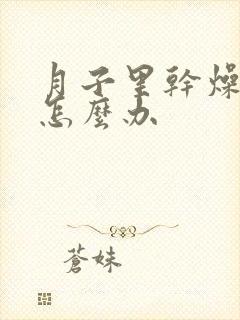 月子里幹燥
怎麼办
蒼妹